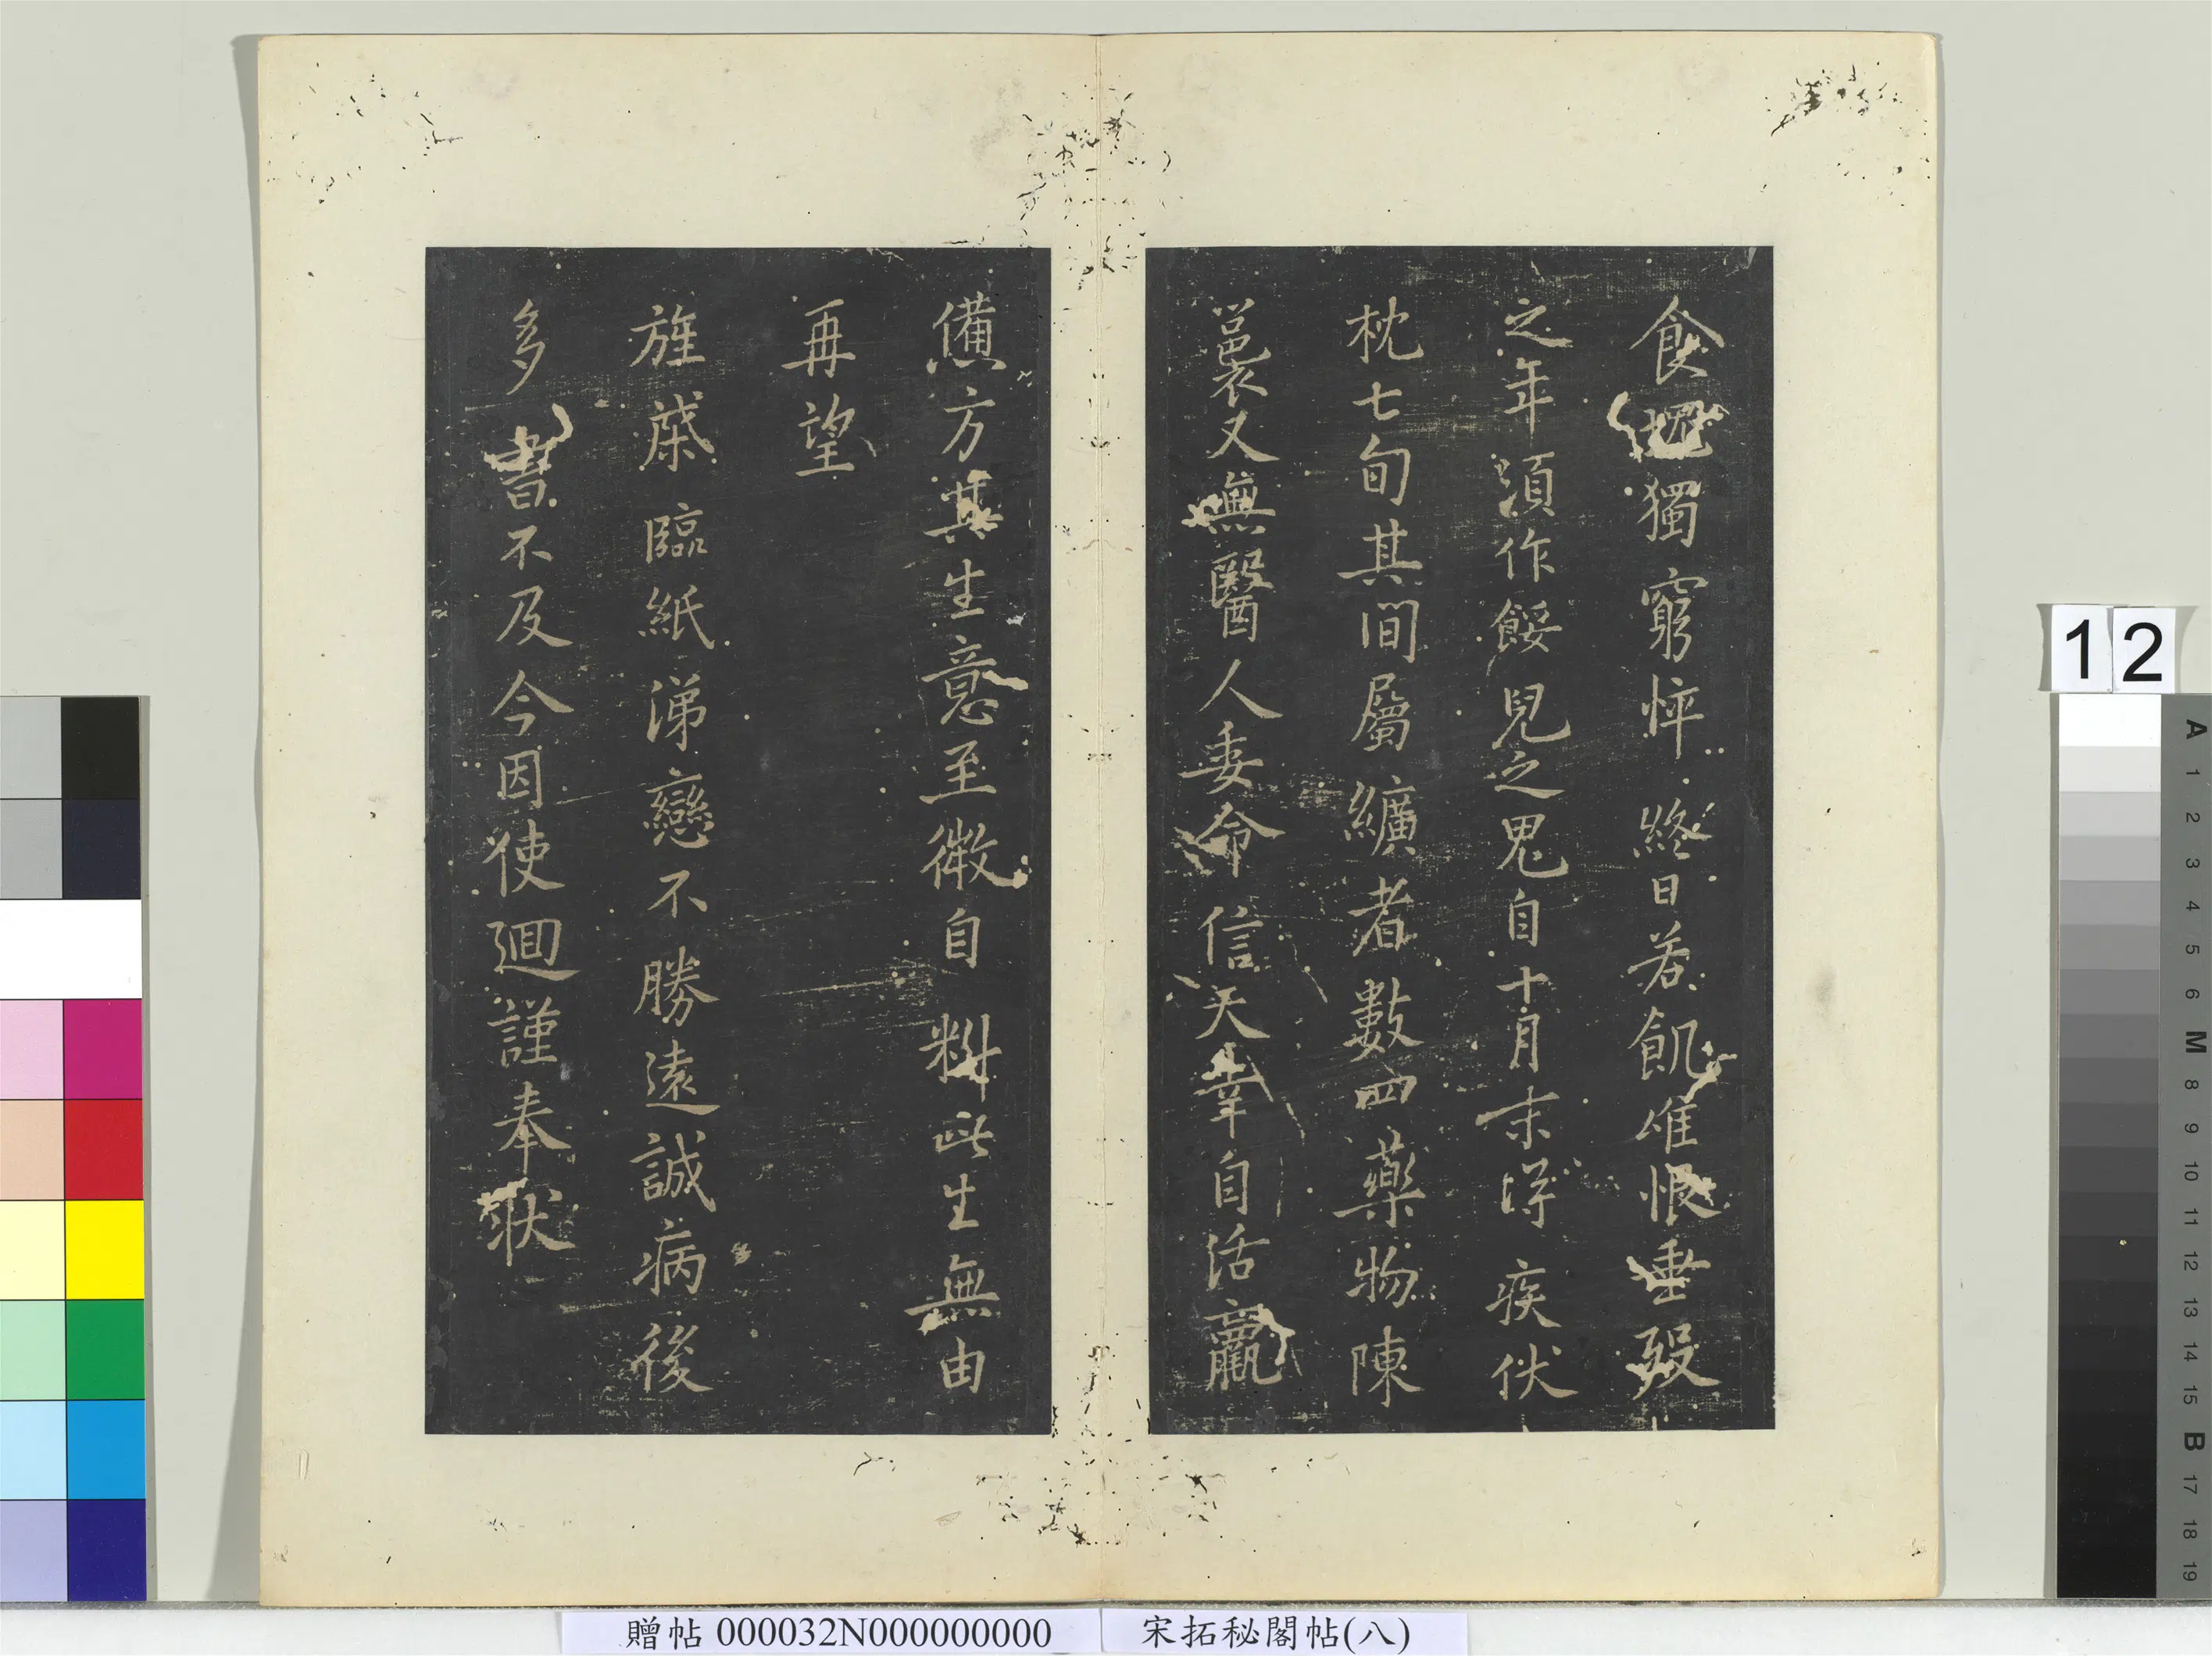 食塊獨窮悴終日若飢唯恨垂歿
之年須作餒兒之鬼自十月末得疾伏
枕七旬其間屬纊者數四藥物陳
裛又無醫人委命信天幸自活羸
憊方甚生意至微自料此生無由
再望
旌棨臨紙涕戀不勝遠誠病後
多書不及今因使迴謹奉狀
12
A 1 2 3 4 5 6 M 8 9 10 11 12 13 14 15 B 17 18 19
贈帖 000032N000000000
宋拓秘閣帖(八)